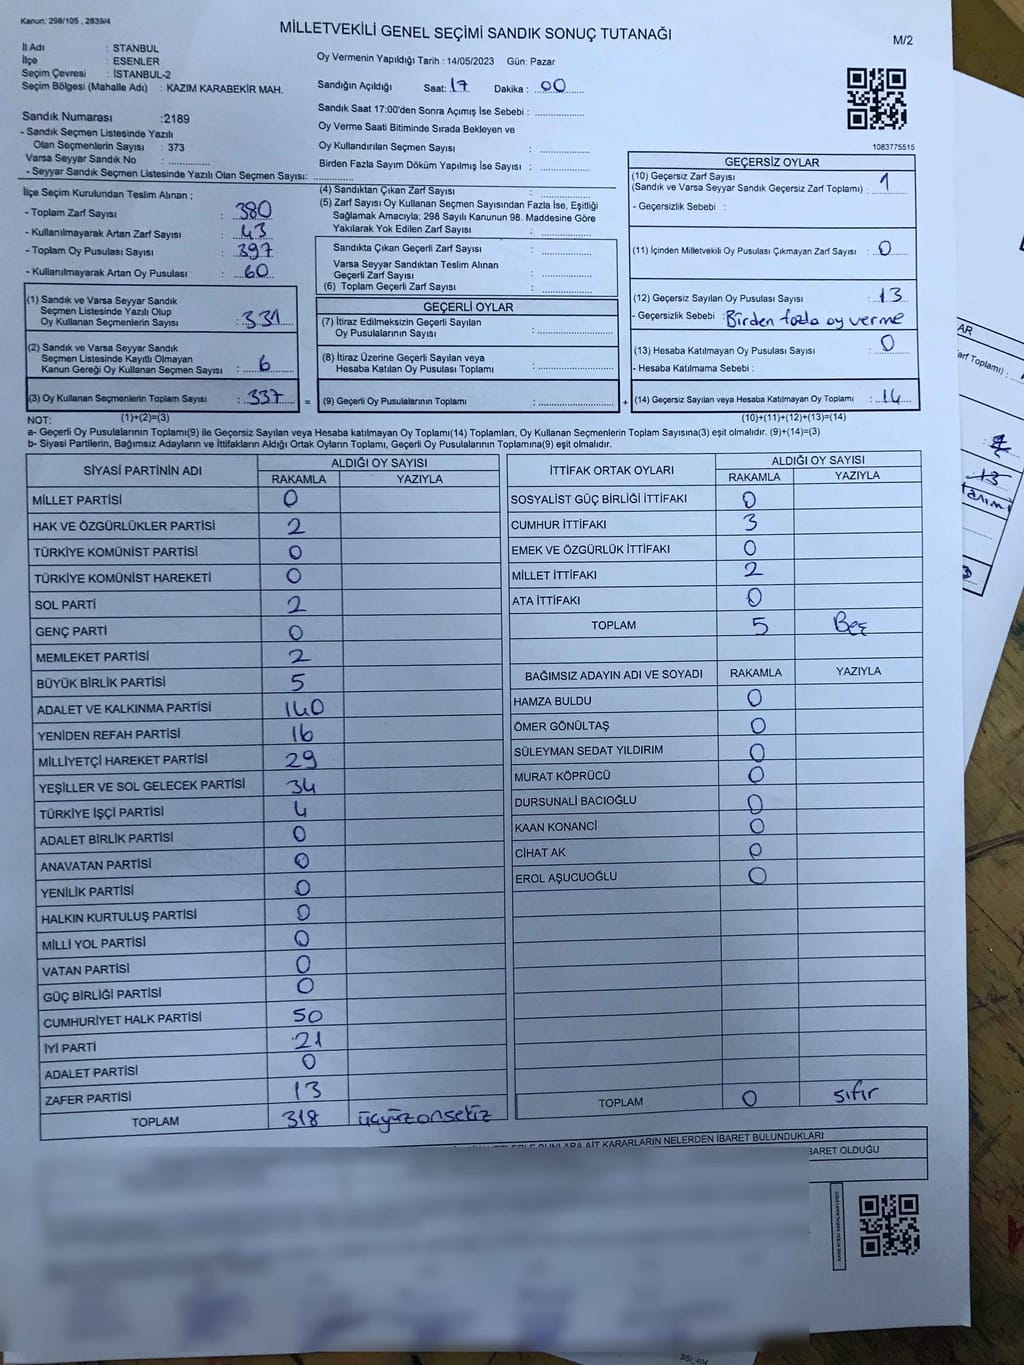 Kanun: 298/105 , 2839/4
MİLLETVEKİLİ GENEL SEÇİMİ SANDIK SONUÇ TUTANAĞI
M/2
İl Adı : STANBUL
İlçe : ESENLER
Seçim Çevresi : İSTANBUL-2
Seçim Bölgesi (Mahalle Adı) : KAZIM KARABEKİR MAH.
Sandık Numarası :2189
- Sandık Seçmen Listesinde Yazılı
Olan Seçmenlerin Sayısı : 373
Varsa Seyyar Sandık No : ..............
- Seyyar Sandık Seçmen Listesinde Yazılı Olan Seçmen Sayısı: ..............
Oy Vermenin Yapıldığı Tarih : 14/05/2023 Gün: Pazar
Sandığın Açıldığı Saat: 17 Dakika : 00
Sandık Saat 17:00'den Sonra Açımış İse Sebebi : ..............
Oy Verme Saati Bitiminde Sırada Bekleyen ve
Oy Kullandırılan Seçmen Sayısı : ..............
Birden Fazla Sayım Döküm Yapılmış İse Sayısı : ..............
1083775515
İlçe Seçim Kurulundan Teslim Alınan ;
- Toplam Zarf Sayısı : 380
- Kullanılmayarak Artan Zarf Sayısı : 43
- Toplam Oy Pusulası Sayısı : 397
- Kullanılmayarak Artan Oy Pusulası : 60
(1) Sandık ve Varsa Seyyar Sandık
Seçmen Listesinde Yazılı Olup
Oy Kullanan Seçmenlerin Sayısı : 331
(2) Sandık ve Varsa Seyyar Sandık
Seçmen Listesinde Kayıtlı Olmayan
Kanun Gereği Oy Kullanan Seçmen Sayısı : 6
(3) Oy Kullanan Seçmenlerin Toplam Sayısı : 337 =
(4) Sandıktan Çıkan Zarf Sayısı : ..............
(5) Zarf Sayısı Oy Kullanan Seçmen Sayısından Fazla İse, Eşitliği
Sağlamak Amacıyla; 298 Sayılı Kanunun 98. Maddesine Göre
Yakılarak Yok Edilen Zarf Sayısı : ..............
Sandıkta Çıkan Geçerli Zarf Sayısı : ..............
Varsa Seyyar Sandıktan Teslim Alınan
Geçerli Zarf Sayısı : ..............
(6) Toplam Geçerli Zarf Sayısı : ..............
GEÇERLİ OYLAR
(7) İtiraz Edilmeksizin Geçerli Sayılan
Oy Pusulalarının Sayısı : ..............
(8) İtiraz Üzerine Geçerli Sayılan veya
Hesaba Katılan Oy Pusulası Toplamı : ..............
(9) Geçerli Oy Pusulalarının Toplamı : .............. +
GEÇERSİZ OYLAR
(10) Geçersiz Zarf Sayısı
(Sandık ve Varsa Seyyar Sandık Geçersiz Zarf Toplamı) : 1
- Geçersizlik Sebebi :
(11) İçinden Milletvekili Oy Pusulası Çıkmayan Zarf Sayısı : 0
(12) Geçersiz Sayılan Oy Pusulası Sayısı : 13
- Geçersizlik Sebebi : Birden fazla oy verme
(13) Hesaba Katılmayan Oy Pusulası Sayısı : 0
- Hesaba Katılmama Sebebi :
(14) Geçersiz Sayılan veya Hesaba Katılmayan Oy Toplamı : 14
NOT: (1)+(2)=(3) (10)+(11)+(12)+(13)=(14)
a- Geçerli Oy Pusulalarının Toplamı(9) ile Geçersiz Sayılan veya Hesaba katılmayan Oy Toplamı(14) Toplamları, Oy Kullanan Seçmenlerin Toplam Sayısına(3) eşit olmalıdır. (9)+(14)=(3)
b- Siyasi Partilerin, Bağımsız Adayların ve İttifakların Aldığı Ortak Oyların Toplamı, Geçerli Oy Pusulalarının Toplamına(9) eşit olmalıdır.
SİYASİ PARTİNİN ADI ALDIĞI OY SAYISI
RAKAMLA YAZIYLA
MİLLET PARTİSİ 0
HAK VE ÖZGÜRLÜKLER PARTİSİ 2
TÜRKİYE KOMÜNİST PARTİSİ 0
TÜRKİYE KOMÜNİST HAREKETİ 0
SOL PARTİ 2
GENÇ PARTİ 0
MEMLEKET PARTİSİ 2
BÜYÜK BİRLİK PARTİSİ 5
ADALET VE KALKINMA PARTİSİ 140
YENİDEN REFAH PARTİSİ 16
MİLLİYETÇİ HAREKET PARTİSİ 29
YEŞİLLER VE SOL GELECEK PARTİSİ 34
TÜRKİYE İŞÇİ PARTİSİ 4
ADALET BİRLİK PARTİSİ 0
ANAVATAN PARTİSİ 0
YENİLİK PARTİSİ 0
HALKIN KURTULUŞ PARTİSİ 0
MİLLİ YOL PARTİSİ 0
VATAN PARTİSİ 0
GÜÇ BİRLİĞİ PARTİSİ 0
CUMHURİYET HALK PARTİSİ 50
İYİ PARTİ 21
ADALET PARTİSİ 0
ZAFER PARTİSİ 13
TOPLAM 318 üçyüzonsekiz
İTTİFAK ORTAK OYLARI ALDIĞI OY SAYISI
RAKAMLA YAZIYLA
SOSYALİST GÜÇ BİRLİĞİ İTTİFAKI 0
CUMHUR İTTİFAKI 3
EMEK VE ÖZGÜRLÜK İTTİFAKI 0
MİLLET İTTİFAKI 2
ATA İTTİFAKI 0
TOPLAM 5 Beş
BAĞIMSIZ ADAYIN ADI VE SOYADI RAKAMLA YAZIYLA
HAMZA BULDU 0
ÖMER GÖNÜLTAŞ 0
SÜLEYMAN SEDAT YILDIRIM 0
MURAT KÖPRÜCÜ 0
DURSUNALİ BACIOĞLU 0
KAAN KONANCİ 0
CİHAT AK 0
EROL AŞUCUOĞLU 0
TOPLAM 0 sıfır
AİT KARARLARIN NELERDEN İBARET BULUNDUKLARI
BARET OLDUĞU
AR
arf Toplamı) :
13